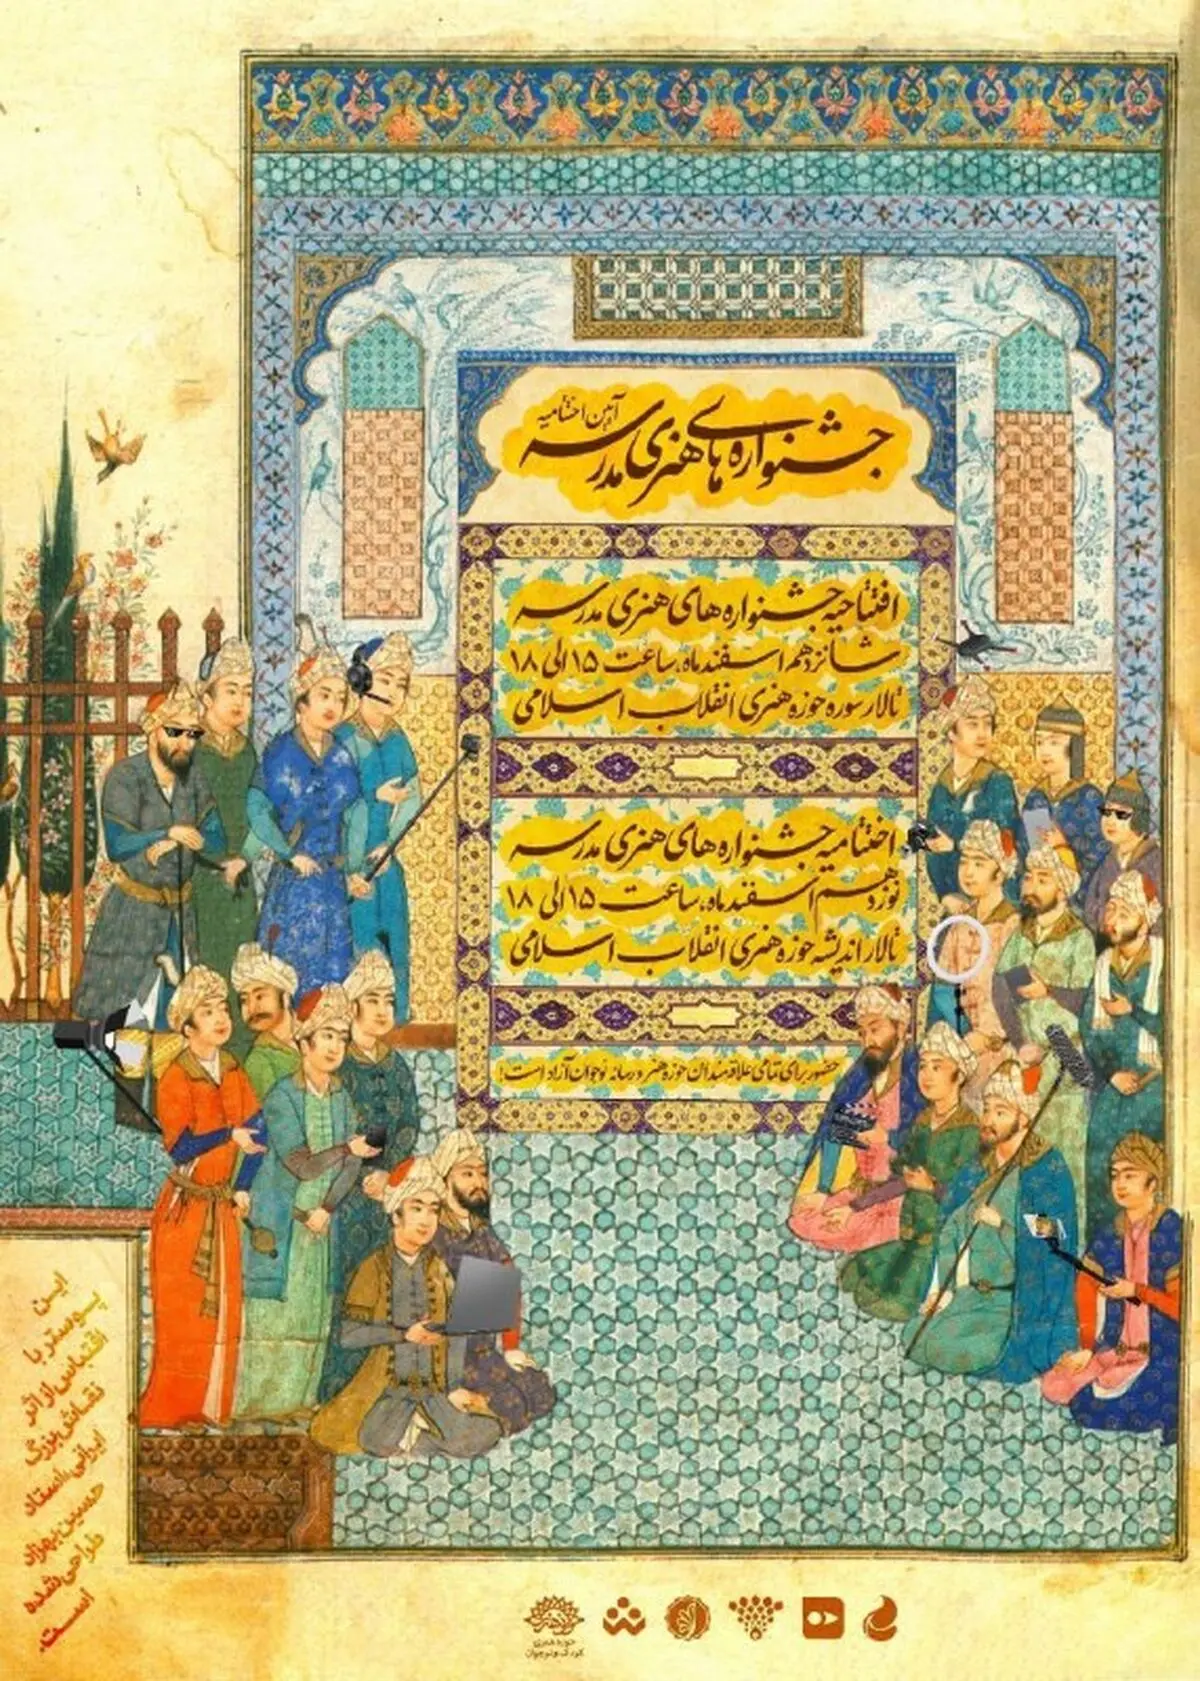 آیین اختتامیه
جشنواره‌های هنری مدرسه
افتتاحیه جشنواره های هنری مدرسه
شانزدهم اسفندماه، ساعت ۱۵ الی ۱۸
تالار سوره حوزه هنری انقلاب اسلامی
اختتامیه جشنواره های هنری مدرسه
نوزدهم اسفندماه، ساعت ۱۵ الی ۱۸
تالار اندیشه حوزه هنری انقلاب اسلامی
حضور برای تمامی علاقه‌مندان حوزه هنر و رسانه نوجوان آزاد است!
این
پوستر با
اقتباس از اثر
نقاش بزرگ
ایرانی، استاد
حسین بهزاد
طراحی شده
است.
حوزه هنری
کودک و نوجوان